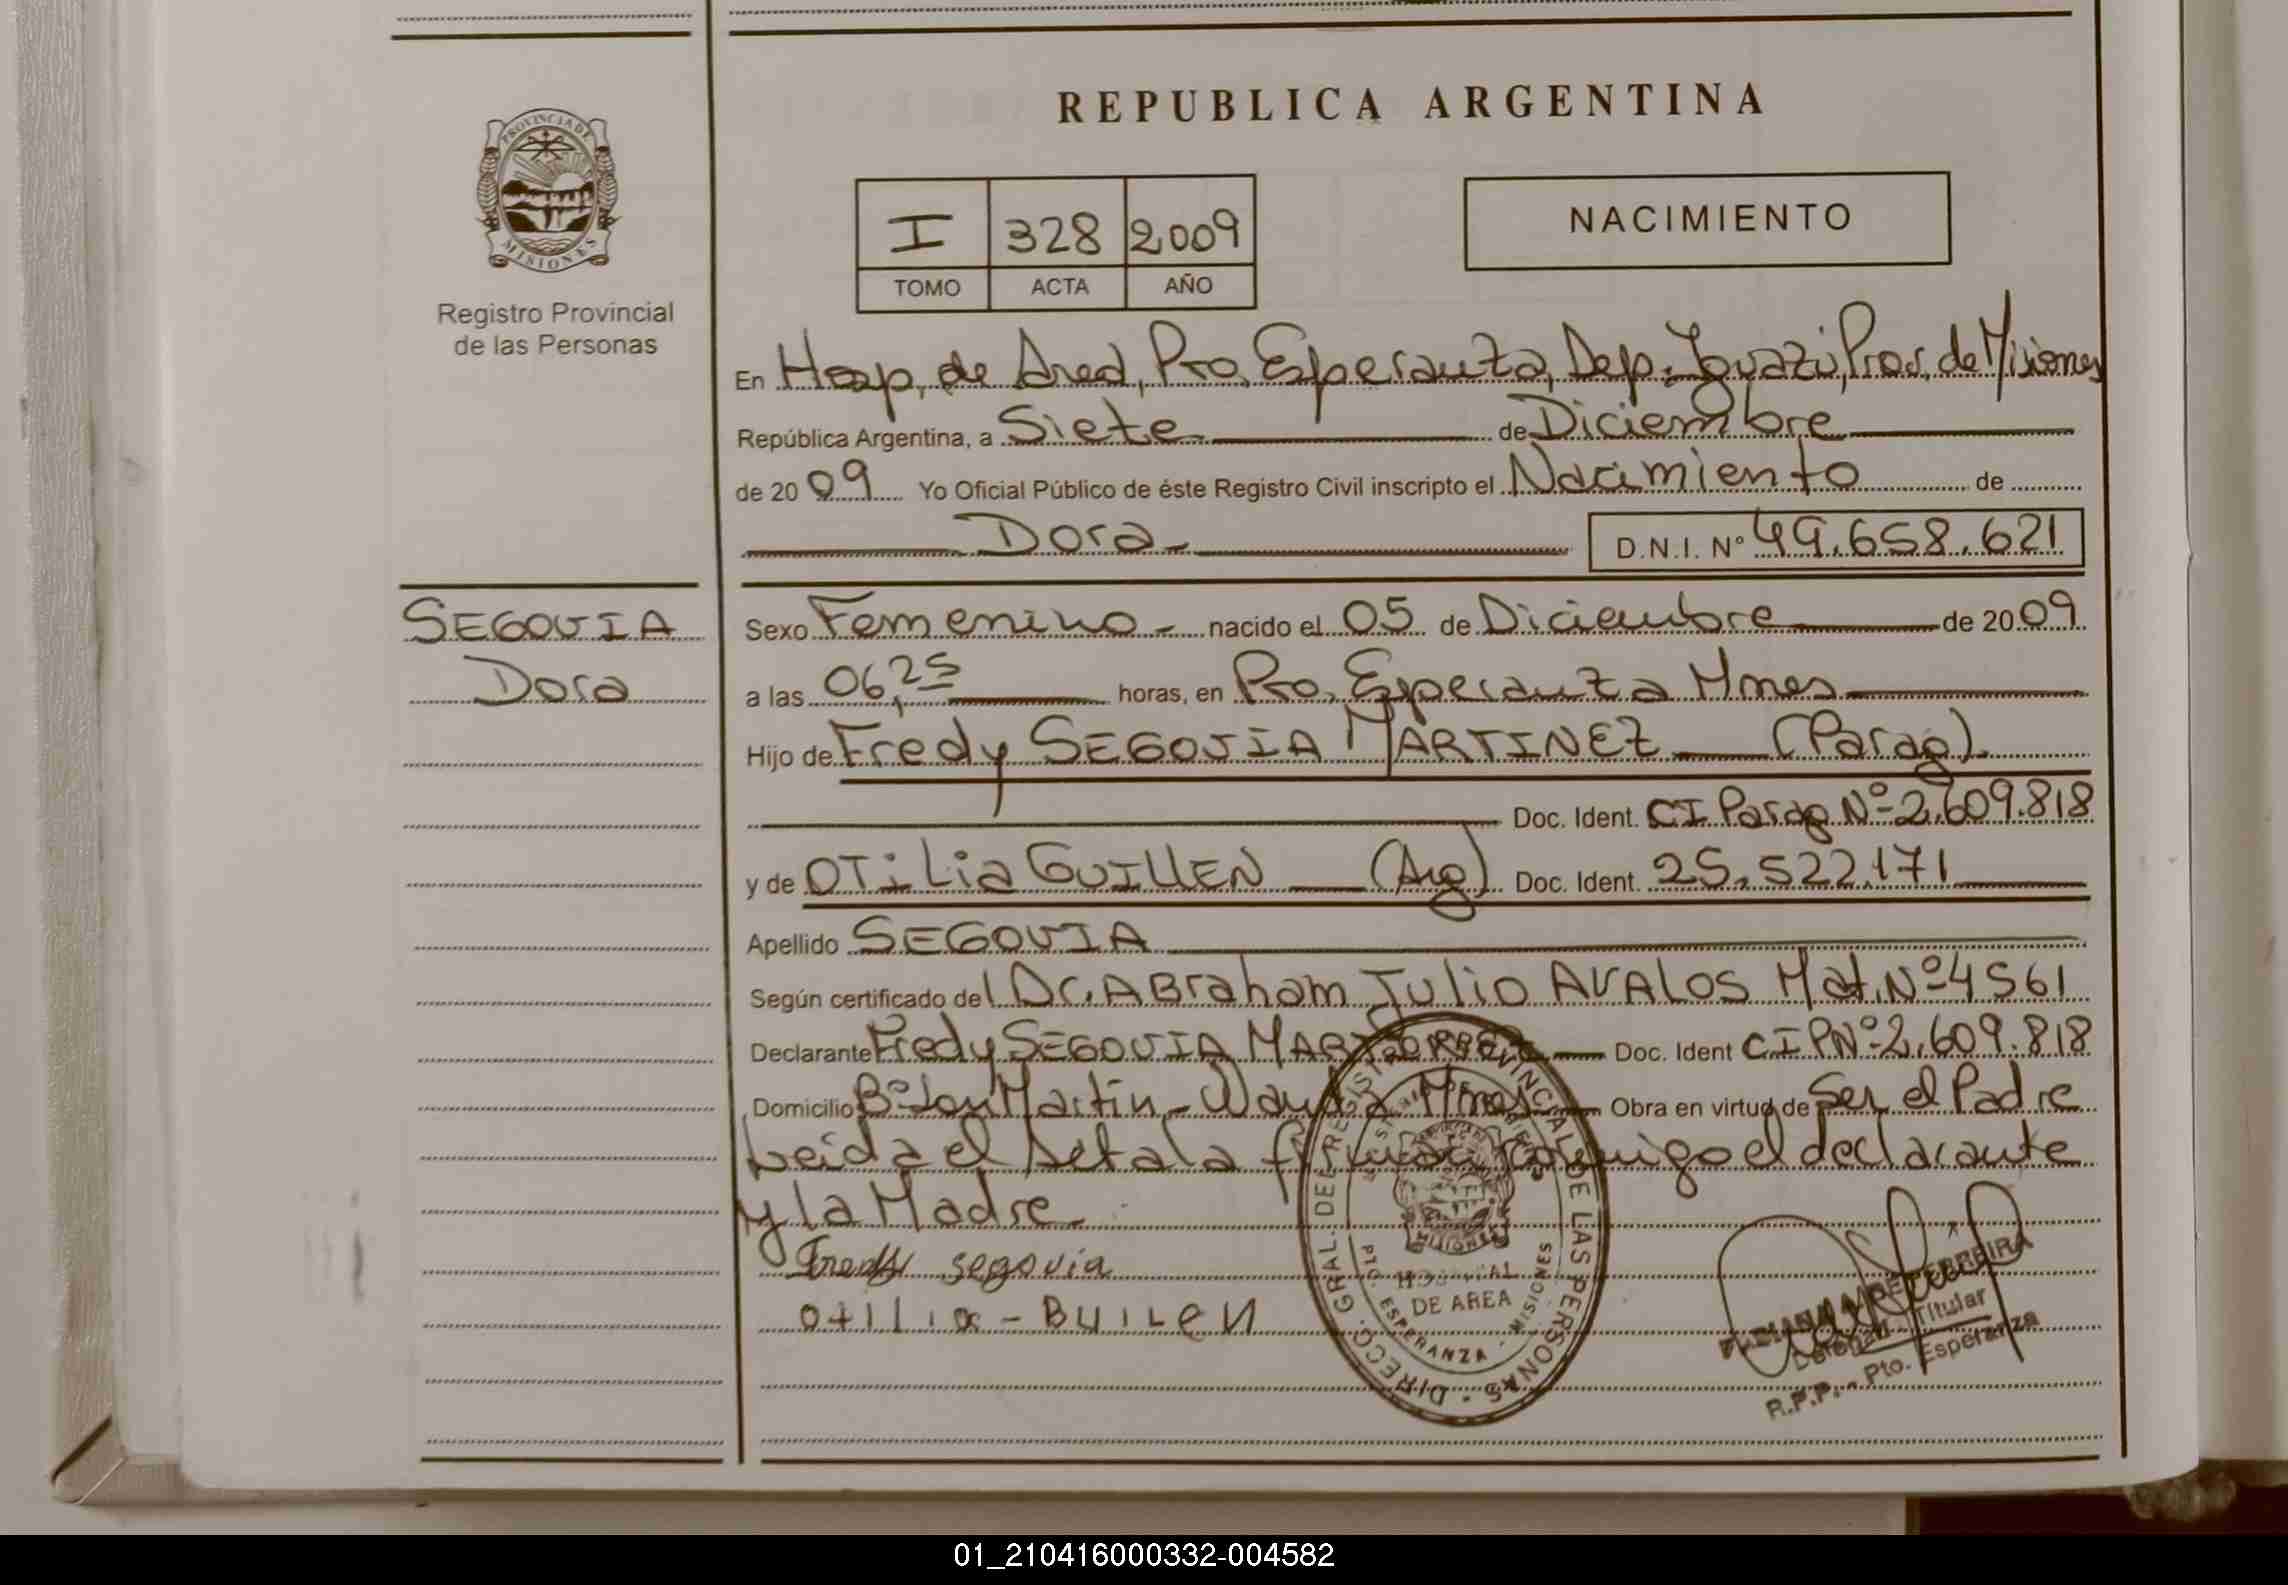 REPUBLICA ARGENTINA
PROVINCIA DE
MISIONES
Registro Provincial
de las Personas
I 328 2009
TOMO ACTA AÑO
NACIMIENTO
En Hosp. de Area, Pto. Esperanza, Dep. Iguazú, Prov. de Misiones
República Argentina, a Siete de Diciembre
de 20 09 Yo Oficial Público de éste Registro Civil inscripto el Nacimiento de
Dora D.N.I. Nº 49.658.621
SEGOVIA
Dora
Sexo Femenino - nacido el 05 de Diciembre de 20 09
a las 06,25 horas, en Pto. Esperanza Mnes
Hijo de Fredy SEGOVIA MARTINEZ (Parag)
Doc. Ident. CI Parag Nº 2.609.818
y de OTiLia GUILLEN (Arg) Doc. Ident. 25.522.171
Apellido SEGOVIA
Según certificado del Dr. ABraham Julio AVALOS Mat. Nº 4561
Declarante Fredy SEGOVIA MARTINEZ Doc. Ident CIP Nº 2.609.818
Domicilio Bº San Martin - Wanda Mnes Obra en virtud de Ser el Padre
Leida el Acta la firman conmigo el declarante
y la Madre
Fredy segovia
otilia - BUILEN
DIRECC. GRAL. DEL REGISTRO PROVINCIAL DE LAS PERSONAS
MISIONES
HOSPITAL
DE AREA
PTO. ESPERANZA - MISIONES
FERREIRA
Titular
R.P.P. - Pto. Esperanza
01_210416000332-004582